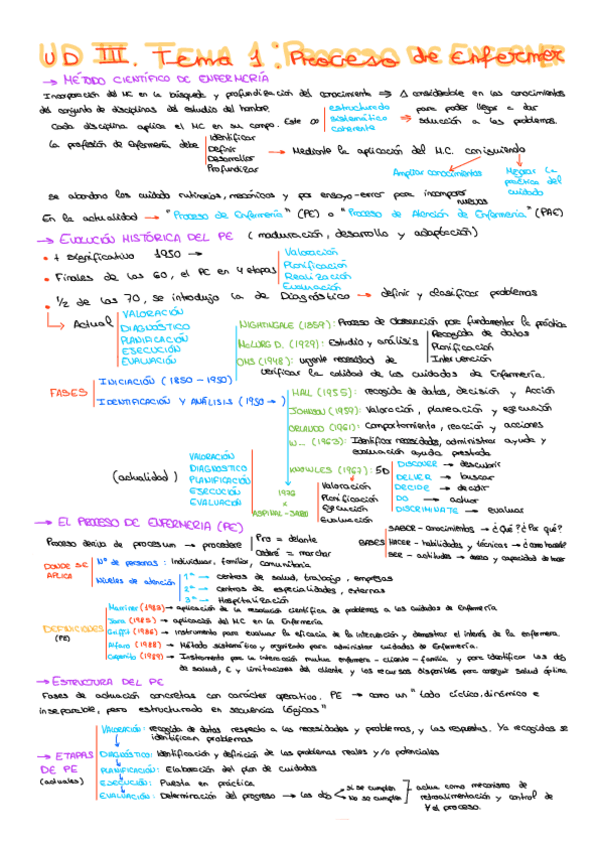 UD III. Tema 1: Proceso de Enfermer
→ MÉTODO CIENTÍFICO DE ENFERMERÍA
Incorporación del MC en la búsqueda y profundización del conocimiento ⇒ Δ considerable en los conocimientos
del conjunto de disciplinas del estudio del hombre.
Cada disciplina aplica el MC en su campo. Este es
estructurado
sistemático
coherente
para poder llegar a dar
→ solución a los problemas.
La profesión de Enfermería debe
Identificar
Definir
Desarrollar
Profundizar
→ Mediante la aplicación del M.C. consiguiendo
Ampliar conocimientos
Mejorar la
práctica del
cuidado
se abandona los cuidado rutinarios, mecánicos y por ensayo-error para incorporar
nuevos
En la actualidad → "Proceso de Enfermería" (PE) o "Proceso de Atención de Enfermería" (PAE)
→ EVOLUCIÓN HISTÓRICA DEL PE (maduración, desarrollo y adaptación)
• + significativo 1950 →
Valoración
Planificación
Realización
Evaluación
• Finales de los 60, el PE en 4 etapas
• 1/2 de los 70, se introdujo la de Diagnóstico → definir y clasificar problemas
↳ Actual
VALORACIÓN
DIAGNÓSTICO
PLANIFICACIÓN
EJECUCIÓN
EVALUACIÓN
NIGHTINGALE (1859): Proceso de observación para fundamentar la práctica
(1929): Estudio y análisis
Recogida de datos
Planificación
Intervención
OMS (1948): urgente necesidad de
verificar la calidad de los cuidados de Enfermería.
FASES
INICIACIÓN (1850-1950)
IDENTIFICACIÓN Y ANÁLISIS (1950→)
HALL (1955): recogida de datos, decisión y Acción
JOHNSON (1959): Valoración, planeación y ejecución
ORLANDO (1961): Comportamiento, reacción y acciones
W... (1963): Identificar necesidades, administrar ayuda y
evaluación ayuda prestada
KNOWLES (1967): 5D
DISCOVER → descubrir
DELVER → buscar
DECIDE → decidir
DO → actuar
DISCRIMINATE → evaluar
(actualidad)
VALORACIÓN
DIAGNOSTICO
PLANIFICACIÓN
EJECUCIÓN
EVALUACIÓN
1976
Valoración
Planificación
Ejecución
Evaluación
→ EL PROCESO DE ENFERMERIA (PE)
Proceso deriva de procesum → procedere
Pro = delante
Cedere = marchar
BASES
SABER - conocimientos → ¿Qué? ¿Por qué?
HACER - habilidades y técnicas → ¿como hacerlo?
SER - actitudes → deseo y capacidad de hacer
DONDE SE
APLICA
Nº de personas: Individuar, familiar, comunitaria
Niveles de atención
1ª → centros de salud, trabajo, empresas
2ª → centros de especialidades, externas
3ª → Hospitalización
DEFINICIONES
(PE)
Marriner (1983) → aplicación de la resolución científica de problemas a los cuidados de Enfermería
(1985) → aplicación del MC en la Enfermería
Griffit (1986) → instrumento para evaluar la eficacia de la intervención y demostrar el interés de la enfermera.
Alfaro (1988) → Método sistemático y organizado para administrar cuidados de Enfermería.
Carpenito (1989) → Instrumento para la interacción mutua enfermera-cliente-familia y para identificar los obj
de salud, E y limitaciones del cliente y los recursos disponibles para conseguir salud óptima
→ ESTRUCTURA DEL PE
Fases de actuación concretas con carácter operativo. PE → como un "todo cíclico, dinámico e
inseparable, pero estructurado en secuencias lógicas"
→ ETAPAS
DE PE
(actuales)
VALORACIÓN: recogida de datos respecto a las necesidades y problemas, y las respuestas. Ya recogidas se
identifican problemas
DIAGNÓSTICO: Identificación y definición de los problemas reales y/o potenciales
PLANIFICACIÓN: Elaboración del plan de cuidados
EJECUCIÓN: Puesta en práctica
EVALUACIÓN: Determinación del progreso → los obj
si se cumplen
No se cumplen
actua como mecanismo de
retroalimentación y control de
el proceso.